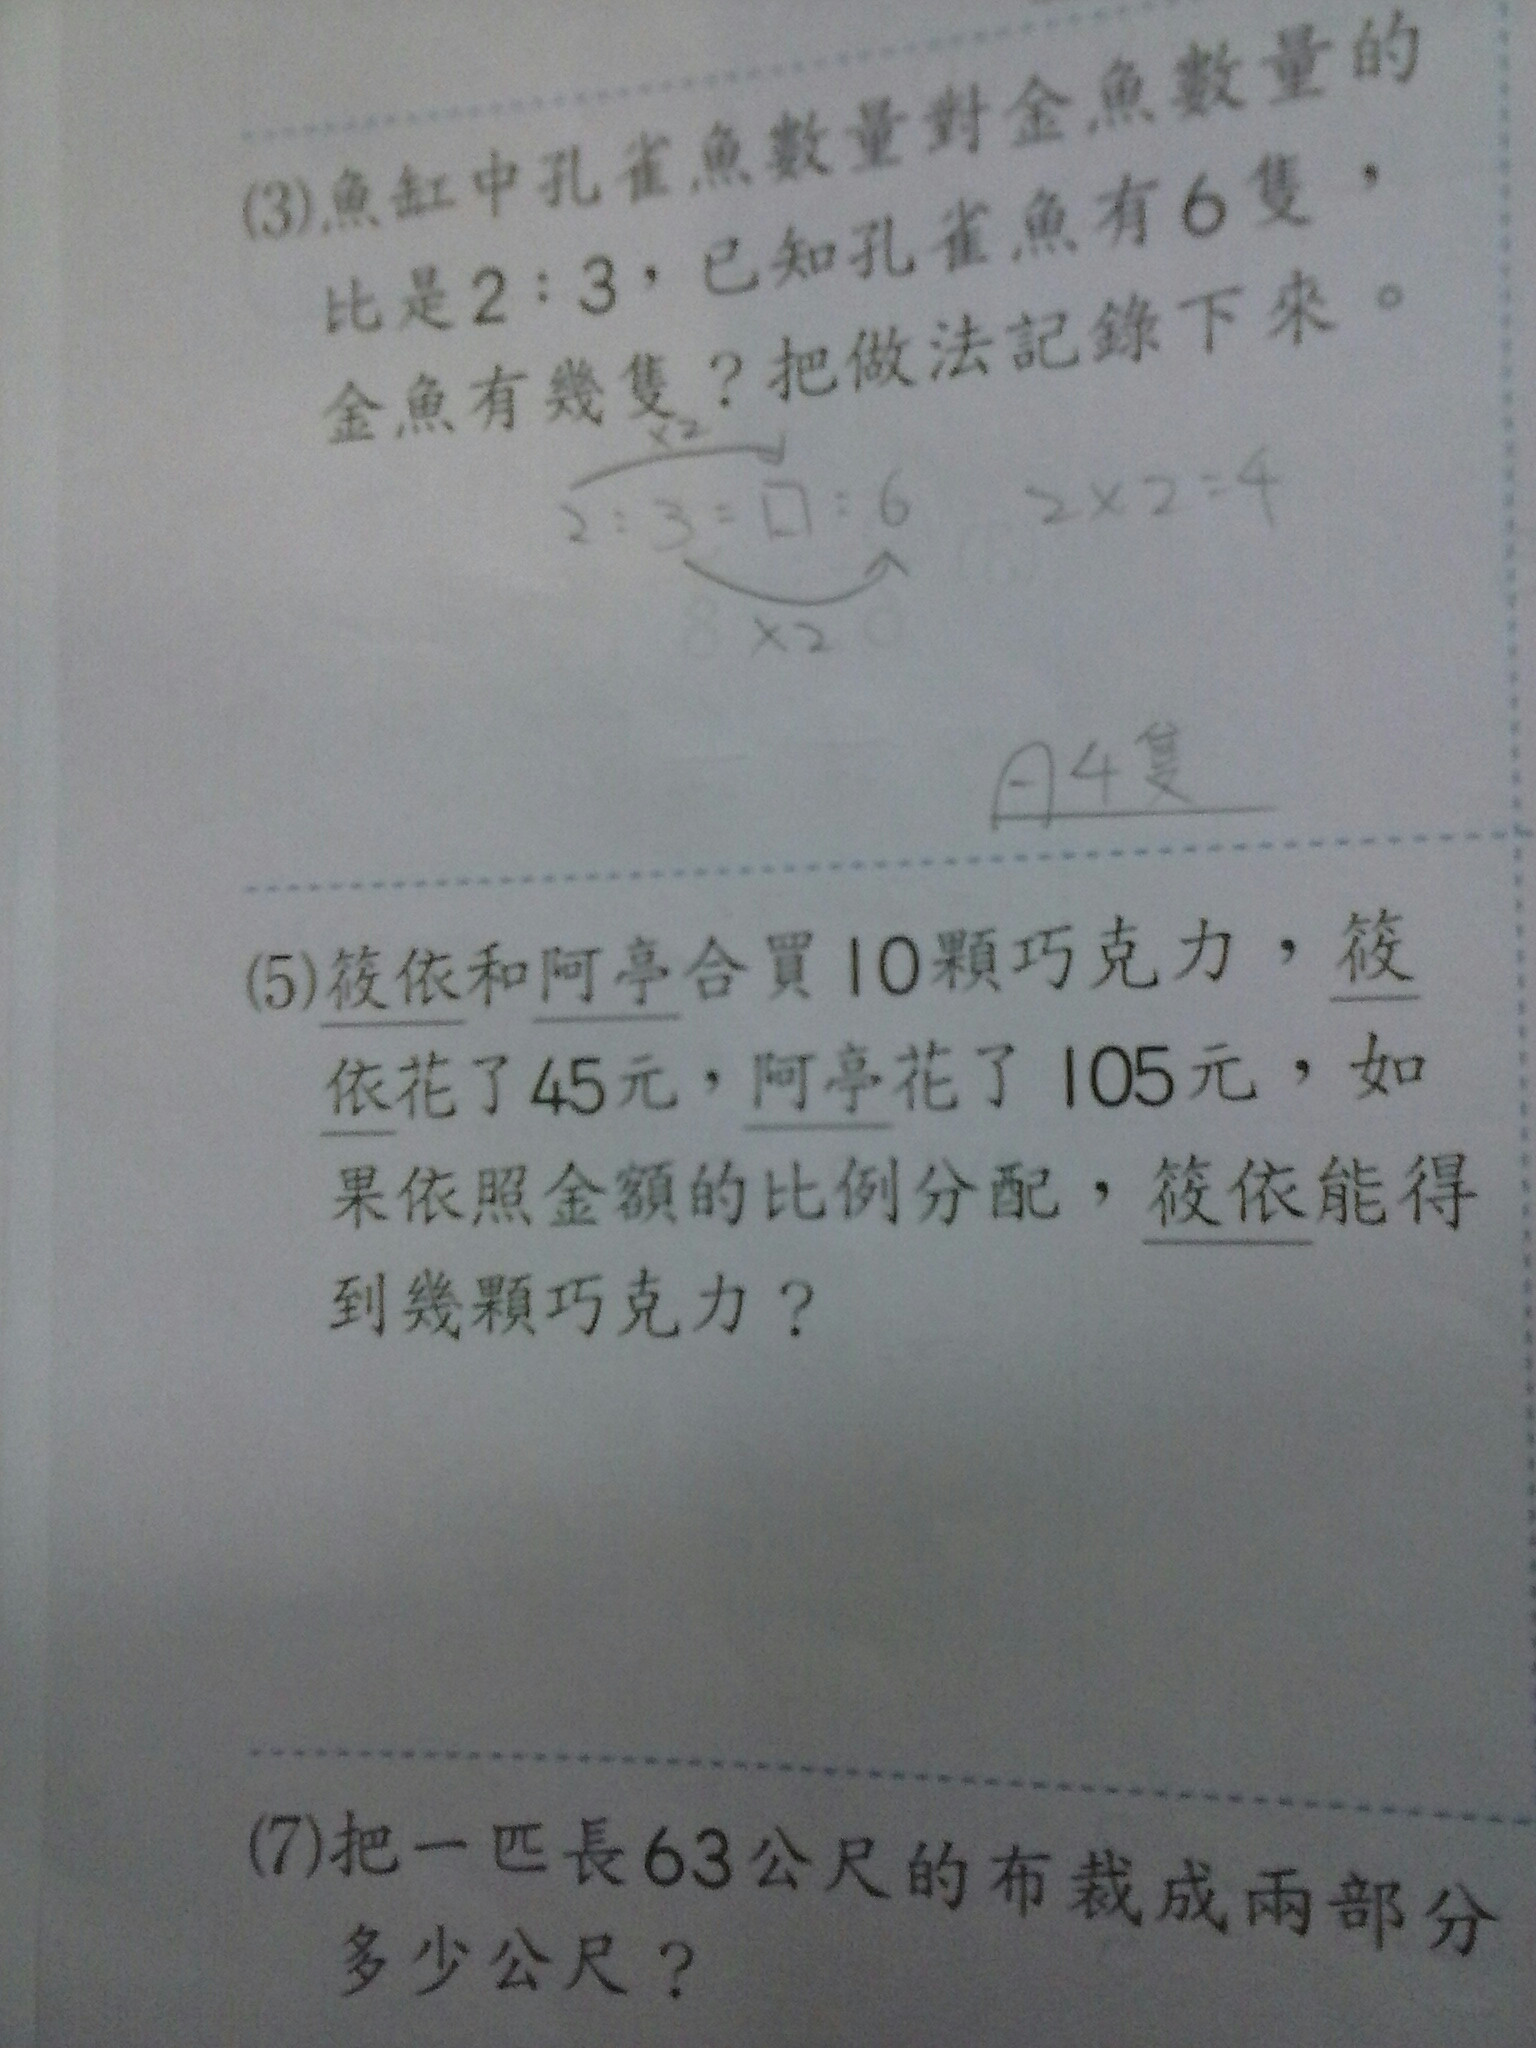 (3)魚缸中孔雀魚數量對金魚數量的
比是2：3，已知孔雀魚有6隻，
金魚有幾隻？把做法記錄下來。
×2
2:3=□:6 2×2=4
×2
A4隻
(5)筱依和阿亭合買10顆巧克力，筱
依花了45元，阿亭花了105元，如
果依照金額的比例分配，筱依能得
到幾顆巧克力？
(7)把一匹長63公尺的布裁成兩部分
多少公尺？